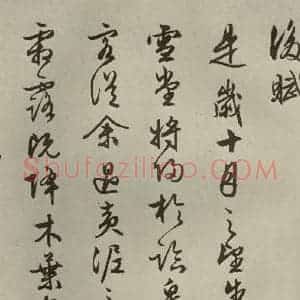 後賦
是歲十月之望步
雪堂將歸於臨皋
客從余過黃泥之
霜露既降木葉
Shufazilimo.com